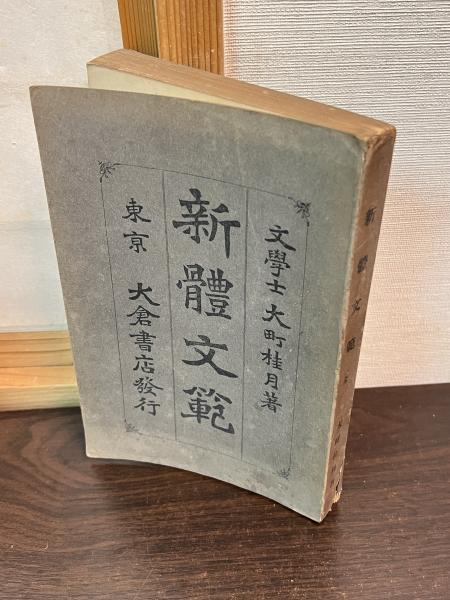 文學士 大町桂月著
新體文範
東京 大倉書店發行
新體文範